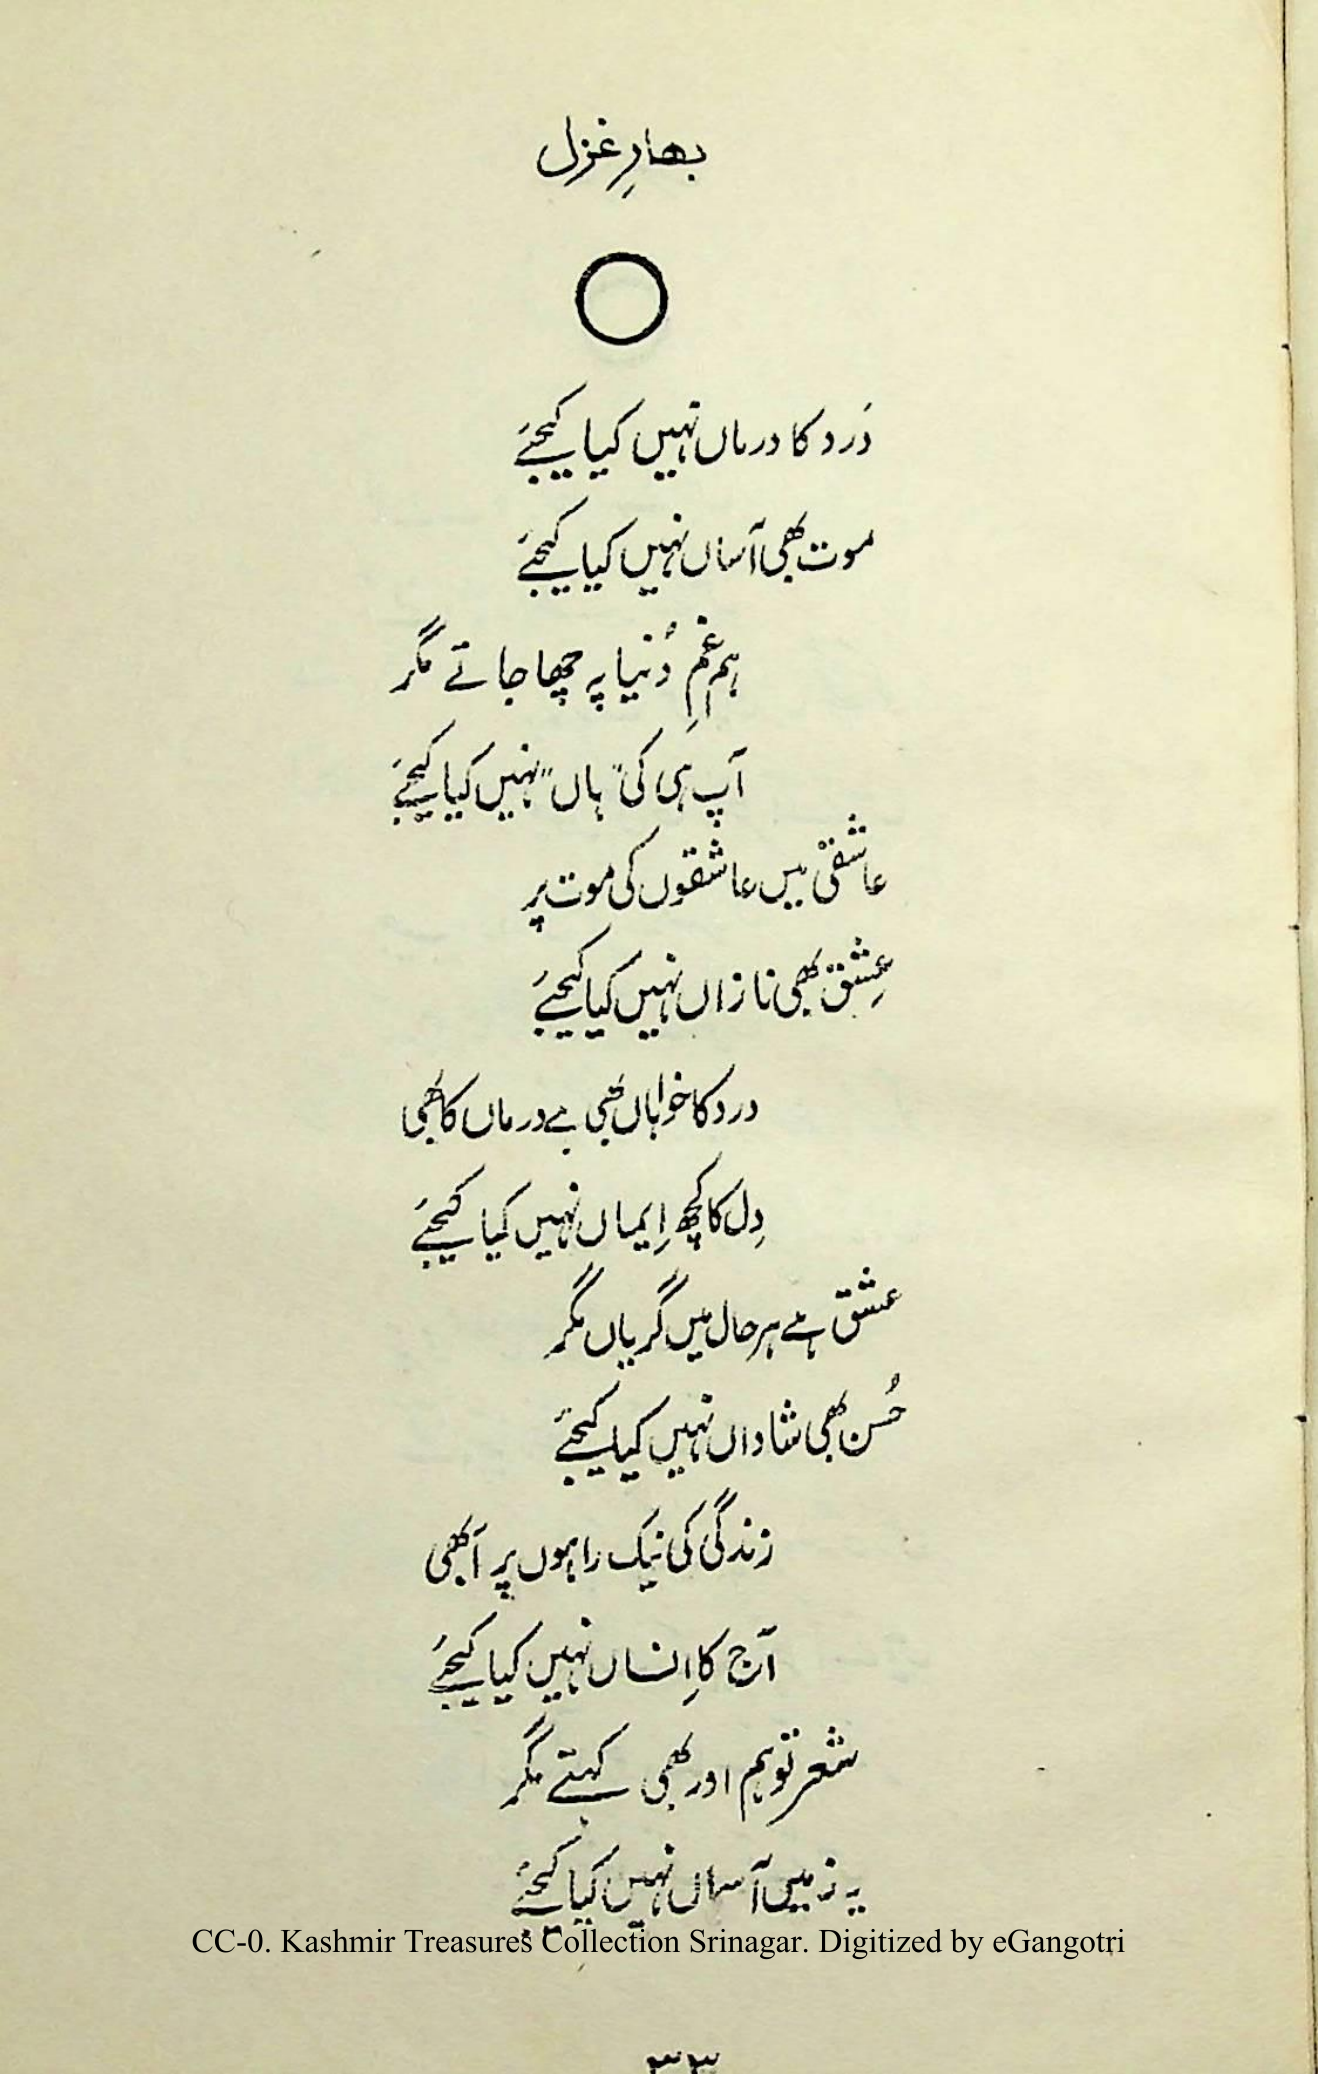 بہارِ غزل
دَرد کا درماں نہیں کیا کیجئے
موت بھی آساں نہیں کیا کیجئے
ہم غمِ دُنیا پہ چھا جاتے مگر
آپ ہی کی "ہاں" نہیں کیا کیجئے
عاشقی میں عاشقوں کی موت پر
عِشق بھی نازاں نہیں کیا کیجئے
درد کا خواہاں بھی ہے درماں کا بھی
دِل کا کچھ اِیماں نہیں کیا کیجئے
عشق ہے ہر حال میں گریاں مگر
حُسن بھی شاداں نہیں کیا کیجئے
زندگی کی نیک راہوں پر اَبھی
آج کا اِنساں نہیں کیا کیجئے
شعر تو ہم اور بھی کہتے مگر
یہ زمیں آساں نہیں کیا کیجئے
CC-0. Kashmir Treasures Collection Srinagar. Digitized by eGangotri
۳۳